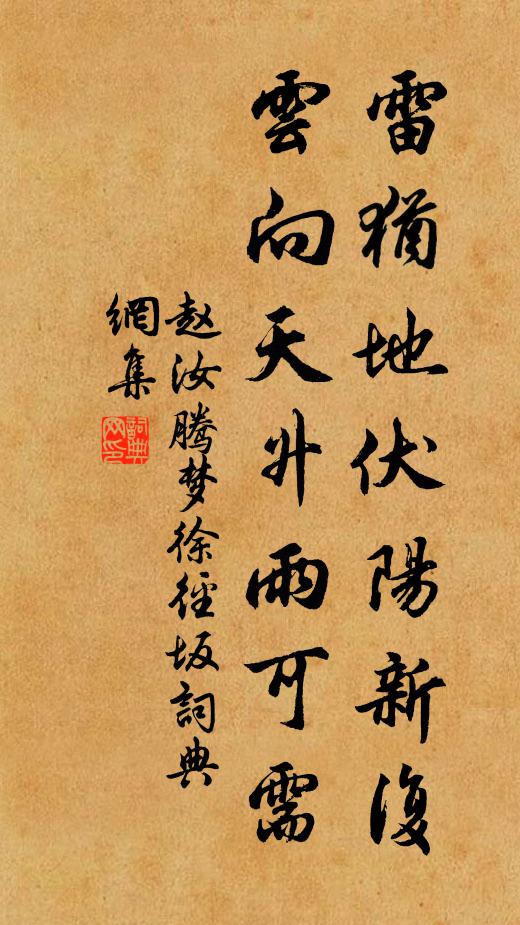 雷猶地伏陽新復
雲向天升雨可需
赵汝腾梦徐径坂詞典
網集
詞典网印